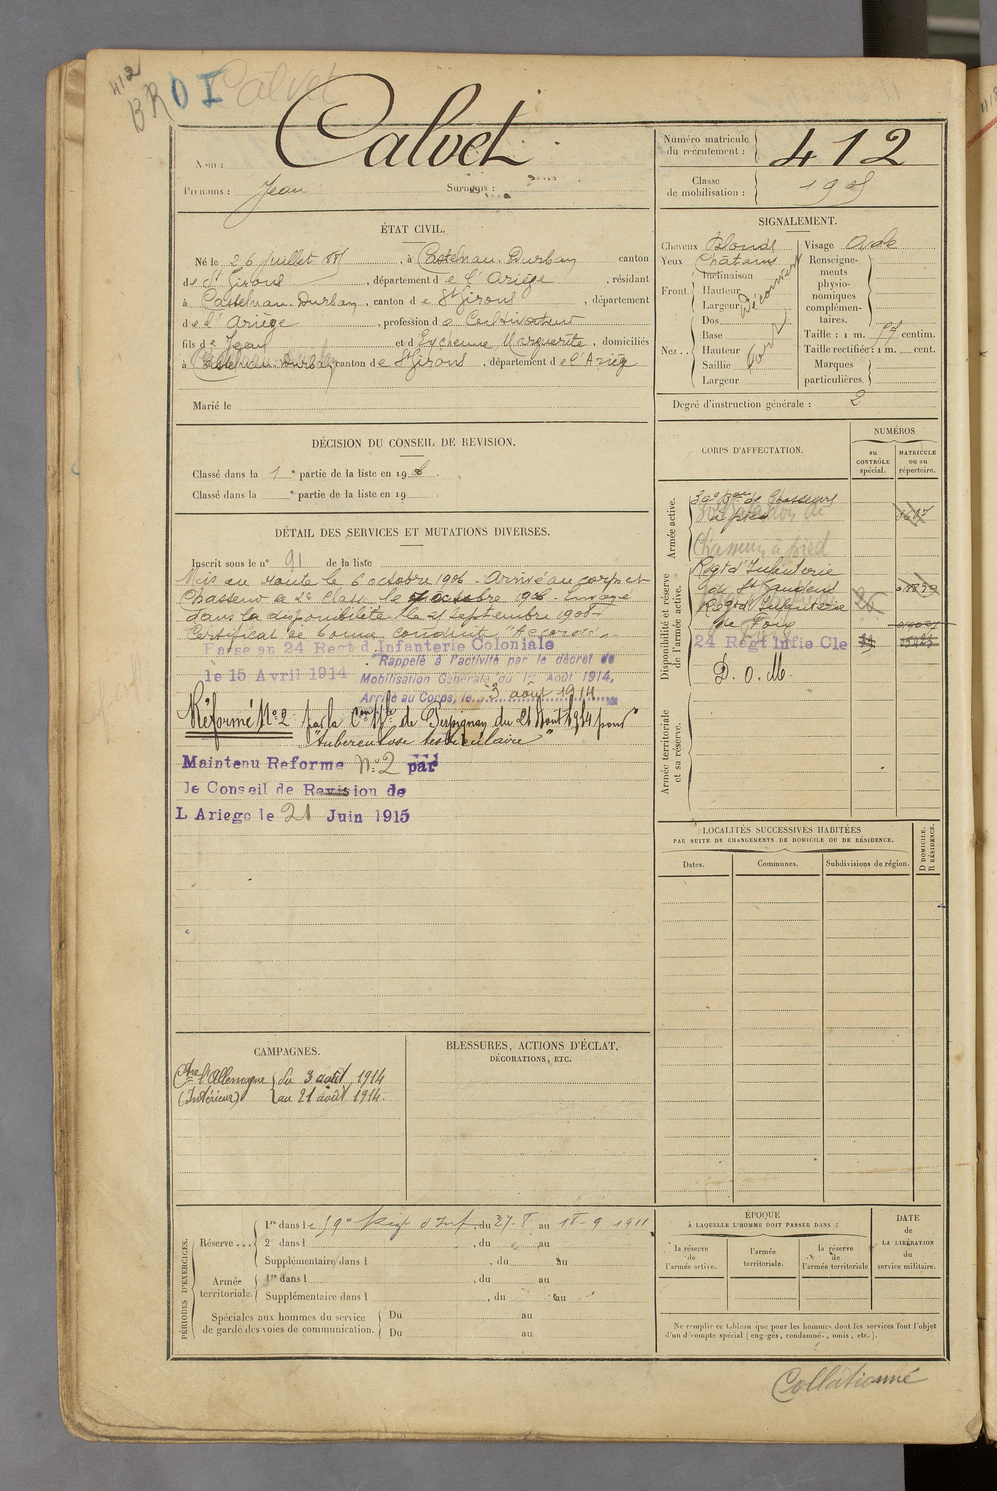 412
BRO I Calvet
Nom : Calvet
Prénoms : Jean Surnoms :
Numéro matricule du recrutement : 412
Classe de mobilisation : 1905
ÉTAT CIVIL.
Né le 26 juillet 1885, à Castelnau-Durban canton
de St Girons, département de l'Ariège, résidant
à Castelnau-Durban, canton de St Girons, département
de l'Ariège, profession de Cultivateur
fils de Jean et d'Eychenne Marguerite, domiciliés
à Castelnau-Durban, canton de St Girons, département de l'Ariège
Marié le
SIGNALEMENT.
Cheveux Blonds
Yeux Châtains
Front Inclinaison
Hauteur
Largeur Découvert
Nez Dos
Base
Hauteur
Saillie
Largeur
Visage Ovale
Renseignements physionomiques complémentaires.
Taille : 1 m. 57 centim.
Taille rectifiée : 1 m. cent.
Marques particulières.
Degré d'instruction générale : 2
DÉCISION DU CONSEIL DE REVISION.
Classé dans la 1e partie de la liste en 1906.
Classé dans la e partie de la liste en 19
DÉTAIL DES SERVICES ET MUTATIONS DIVERSES.
Inscrit sous le n° 91 de la liste
Mis en route le 6 octobre 1906. Arrivé au corps et
Chasseur de 2e Classe le 7 octobre 1906. Envoyé
dans la disponibilité le 25 septembre 1908.
Certificat de bonne conduite Accordé.
Passe au 24 Regt d Infanterie Coloniale
le 15 Avril 1914
"Rappelé à l'activité par le décret de
Mobilisation Générale du 1er Août 1914,
Arrivé au Corps, le 3 août 1914
Réformé N°2 par la Con Sple de Perpignan du 21 Août 1914 pour
"tuberculose testiculaire"
Maintenu Reforme N°2 par
le Conseil de Revision de
L Ariege le 21 Juin 1915
CORPS D'AFFECTATION.
NUMÉROS
au CONTRÔLE spécial.
MATRICULE ou au répertoire.
Armée active.
Bataillon de
Chasseurs à pied
Disponibilité et réserve de l'armée active.
Régt d'Infanterie
de St Gaudens
Régt d'Infanterie
de Foix
24 Regt Infie Cle
D. O. M.
Armée territoriale et sa réserve.
LOCALITÉS SUCCESSIVES HABITÉES
PAR SUITE DE CHANGEMENTS DE DOMICILE OU DE RÉSIDENCE.
Dates. Communes. Subdivisions de région. D DOMICILE. R RÉSIDENCE.
CAMPAGNES.
Ctre l'Allemagne du 3 août 1914
(Intérieur) au 21 août 1914.
BLESSURES, ACTIONS D'ÉCLAT,
DÉCORATIONS, ETC.
PÉRIODES D'EXERCICES.
Réserve... 1re dans le 59e Régt d'Inf, du 27-8 au 18-9 1911
2e dans l , du au
Supplémentaire dans l , du au
Armée territoriale. 1re dans l , du au
Supplémentaire dans l , du au
Spéciales aux hommes du service de garde des voies de communication. Du au
Du au
ÉPOQUE
À LAQUELLE L'HOMME DOIT PASSER DANS :
la réserve de l'armée active.
l'armée territoriale.
la réserve de l'armée territoriale
DATE de LA LIBÉRATION du service militaire.
Ne remplir ce tableau que pour les hommes dont les services font l'objet
d'un décompte spécial (engagés, condamnés, omis, etc.).
Collationné